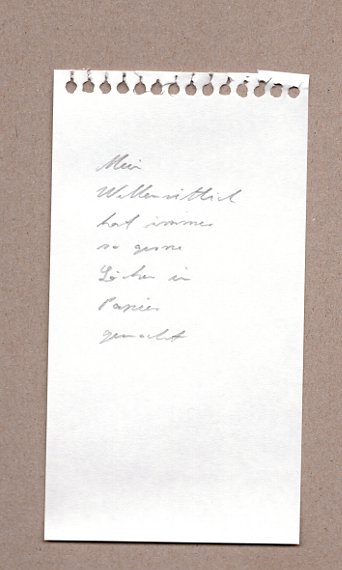 Mein
Wellensittich
hat immer
so gerne
Löcher in
Papier
gemacht